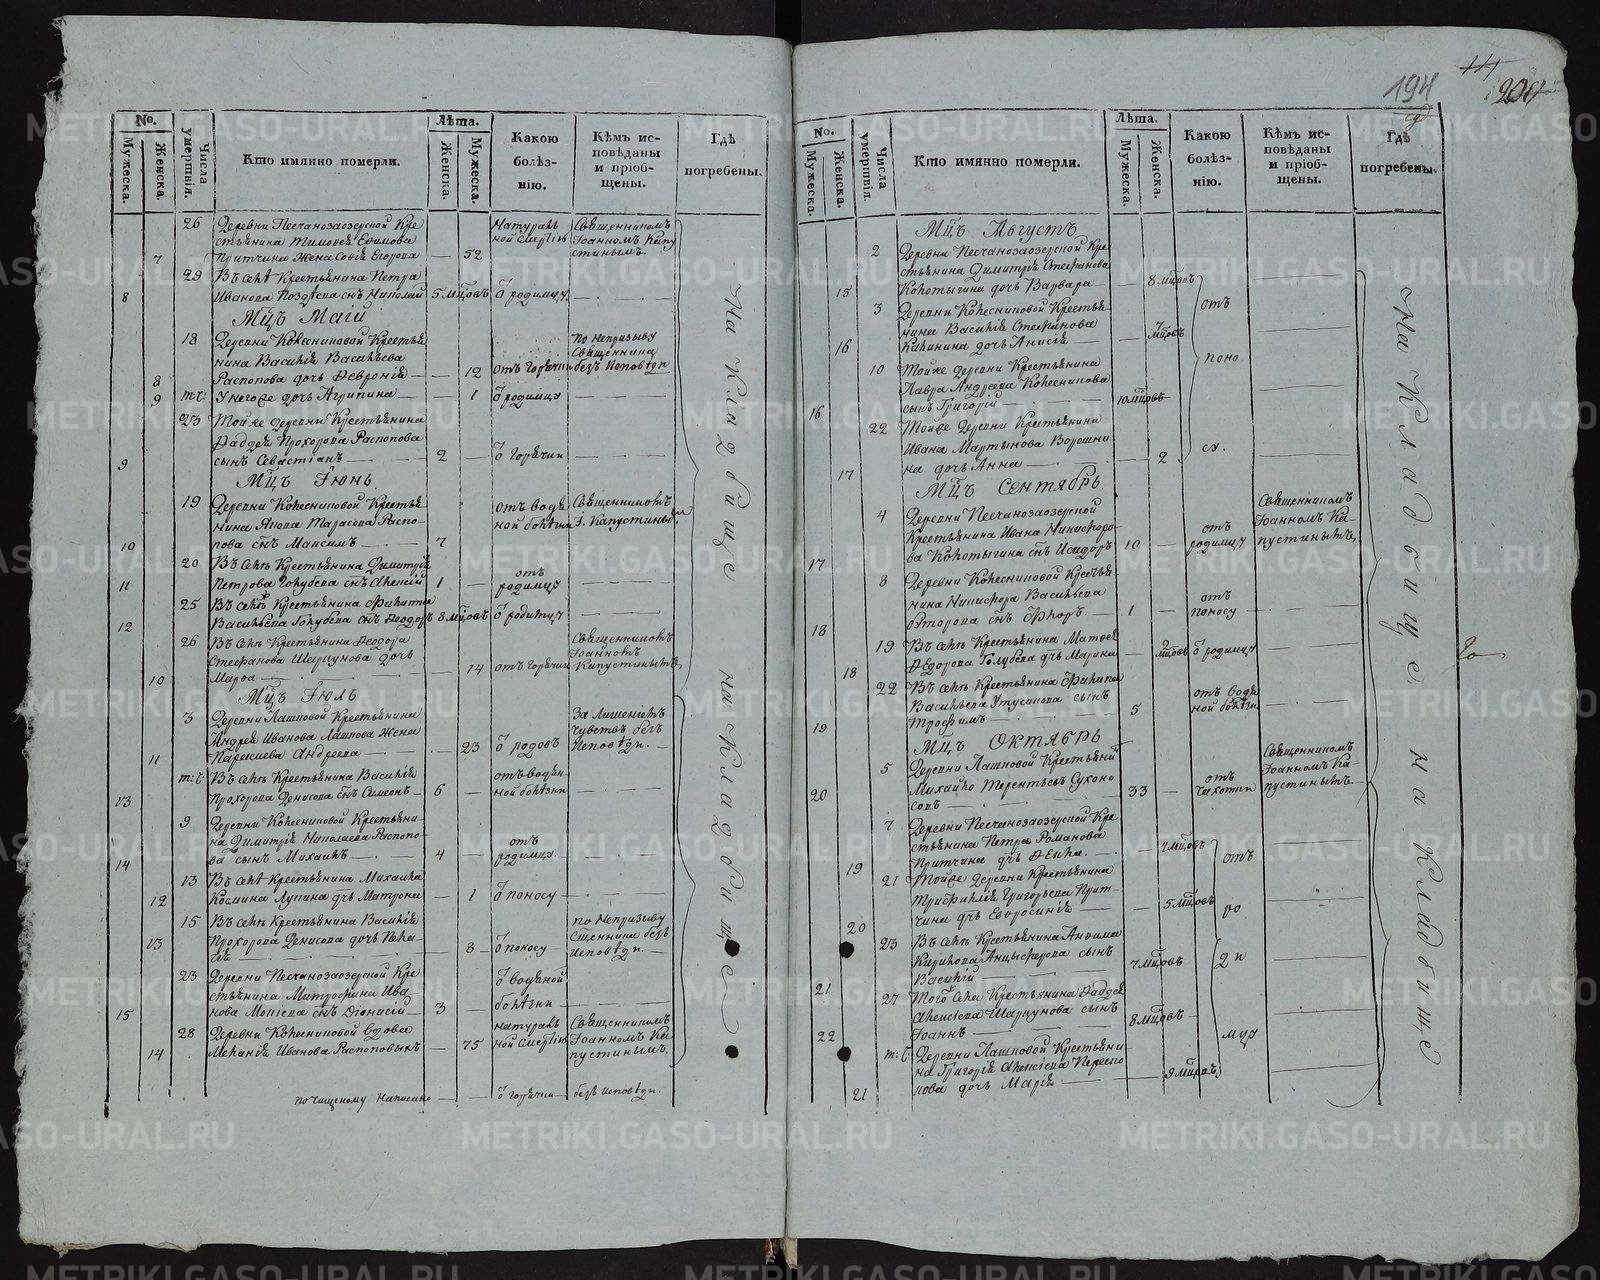 194
200
№.
Мужеска.
Женска.
Числа умертвія.
Кто имянно померли.
Лѣта.
Женска.
Мужеска.
Какою болѣз-
нію.
Кѣмъ ис-
повѣданы
и пріоб-
щены.
Гдѣ
погребены.
26 Деревни Песчанозаозерской Кре
стьянина Тимофея Ефимова
7 Притчина жена Софія Егорова — 52
натураль
ной смертію
Священникомъ
Іоанномъ Капу
стинымъ.
29 Въ селѣ Крестьянина Петра
8 Иванова Поздѣева сн҃ъ Николай 5 мц҃овъ
родимцу
Мц҃ъ Маій
18 Деревни Колесниковой Крестья
нина Василія Васильева
8 Распопова дочь Феврония — 12
отъ горячки
по непризыву
Священника
безъ исповѣди
9 т: ч: У негоже дочь Агрипина — 1
родимцу
23 Тойже деревни Крестьянина
Фаддея Прохорова Распопова
9 сынъ Севастіанъ — 2
горячки
Мц҃ъ Іюнь
19 Деревни Колесниковой Крестья
нина Якова Тарасова Распо-
10 пова сн҃ъ Максимъ — 7
отъ водя
ной болѣзни
Священникомъ
І. Капустинымъ
20 Въ селѣ Крестьянина Димитрія
11 Петрова Голубева сн҃ъ Алексій 1 —
отъ
родимцу
25 Въ селѣ Крестьянина Филипа
12 Васильева Голубева сн҃ъ Феодоръ 8 мц҃овъ
родимцу
26 Въ селѣ Крестьянина Феодора
Стефанова Шарпунова дочь
10 Марфа — 14
отъ горячки
Священникомъ
Іоанномъ
Капустинымъ
Мц҃ъ Іюль
3 Деревни Лашповой Крестьянина
Андрея Иванова Лашпова жена
11 Параскева Андреева — 23
родовъ
За лишеніемъ
чувствъ безъ
исповѣди.
т: ч: Въ селѣ Крестьянина Василія
13 Прохорова Денисова сн҃ъ Симеонъ — 6
отъ водян
ной болѣзни
9 Деревни Колесниковой Крестьяни-
на Димитрія Николаева Распопо-
14 ва сынъ Михаилъ — 4
отъ
родимцу
13 Въ селѣ Крестьянина Михаила
12 Космина Лупина дч҃ь Матрона — 1
поносу
15 Въ селѣ Крестьянина Василія
13 Прохорова Денисова дочь Пела-
гія — 8
поносу
по непризыву
Сщ҃енника безъ
исповѣди
23 Деревни Песчанозаозерской Кре
стьянина Митрофана Ива
15 нова сн҃ъ Діонисій — 3
водяной
болѣзни
28 Деревни Колесниковой вдова
14 Меланія Иванова Распоповыхъ — 75
натураль
ной смертію
Священникомъ
Іоанномъ Ка
пустинымъ.
написано
горячки — безъ исповѣди.
На кладбище
на кладбище
№.
Мужеска.
Женска.
Числа умертвія.
Кто имянно померли.
Лѣта.
Мужеска.
Женска.
Какою
болѣз-
нію.
Кѣмъ ис-
повѣданы
и пріоб-
щены.
Гдѣ
погребены.
Мц҃ъ Августъ
2 Деревни Песчанозаозерской Кре
стьянина Димитрія Стефанова
15 Колотыгина дочь Варвара — 8 мц҃овъ
3 Деревни Колесниковой Крестья-
нина Василія Стефанова
16 Калинина дочь Анисія — 7 мц҃овъ
10 Тойже деревни Крестьянина
Лавра Андреева Колесникова
16 сынъ Григорій — 10 мц҃овъ
22 Тойже деревни Крестьянина
Ивана Мартынова Ворошни
17 на дочь Анна — 2
отъ
поно
са.
Мц҃ъ Сентябрь.
4 Деревни Песчанозаозерской
Крестьянина Ивана Никифоро-
17 ва Колотыгина сн҃ъ Исидоръ 10 —
отъ
родимцу
Священникомъ
Іоанномъ Ка-
пустинымъ,
8 Деревни Колесниковой Крестья-
нина Никифора Васильева
18 Второва сн҃ъ Флоръ — 1 —
отъ
поносу
19 Въ селѣ Крестьянина Матвея
18 Федорова Голубева дч҃ь Марина — 2 мц҃овъ
родимцу
22 Въ селѣ Крестьянина Филипа
Васильева сынъ
19 Трофимъ — 5
отъ водя
ной болѣзни
Мц҃ъ Октябрь
5 Деревни Лашповой Крестьянин
20 Михайло Терентьевъ Сухоно
совъ — 33 —
отъ
чахотки
Священникомъ
Іоанномъ Ка-
пустинымъ.
7 Деревни Песчанозаозерской Кре
стьянина Петра Романова
19 Притчина дч҃ь — 7 мц҃овъ
21 Тойже деревни Крестьянина
Трифилія Григорьева Прит-
20 чина дч҃ь Евфросинія — 5 мц҃овъ
23 Въ селѣ Крестьянина Анфима
Кирилова Анцыферова сынъ
21 Василій 7 мц҃овъ
27 Того села Крестьянина Фаддея
Алексіева Шарпунова сынъ
22 Іоаннъ — 8 мц҃овъ
т: ч: Деревни Лашповой Крестьяни-
на Григорія Алексіева
21 нова дочь Марія — 9 мц҃овъ
отъ
ро
ди
мцу
На кладбище
на кладбище
METRIKI.GASO-URAL.RU